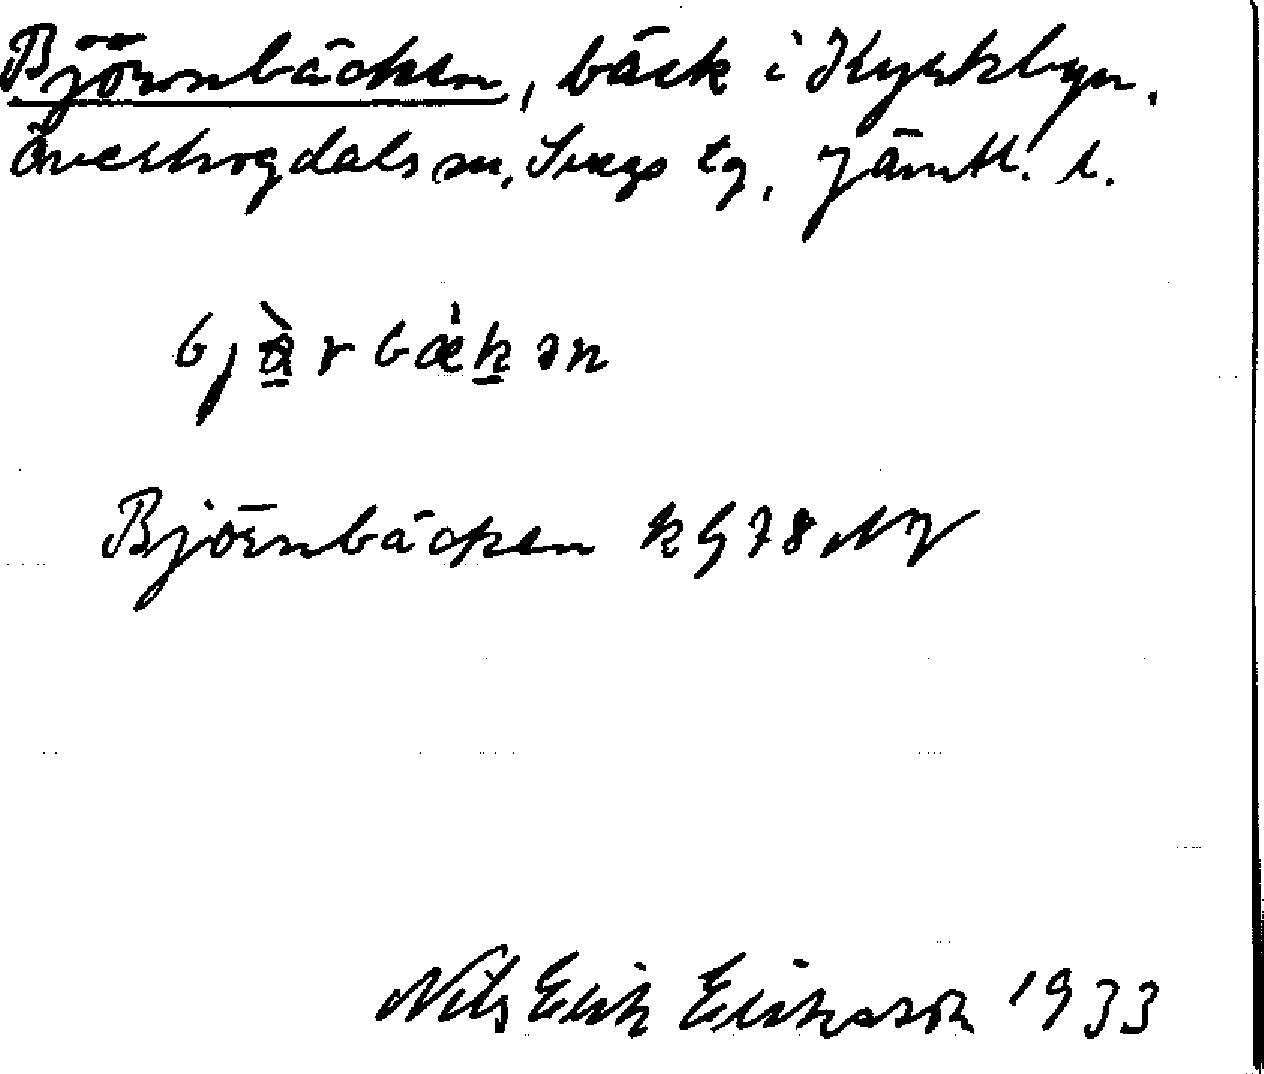 Björnbäcken, bäck i Kyrkbyn,
Överhogdals sn, Svegs tg, Jämtl. l.
bjɑ̀rbæ̀kən
Björnbäcken kg 78 NV
Nils Erik Eriksson 1933